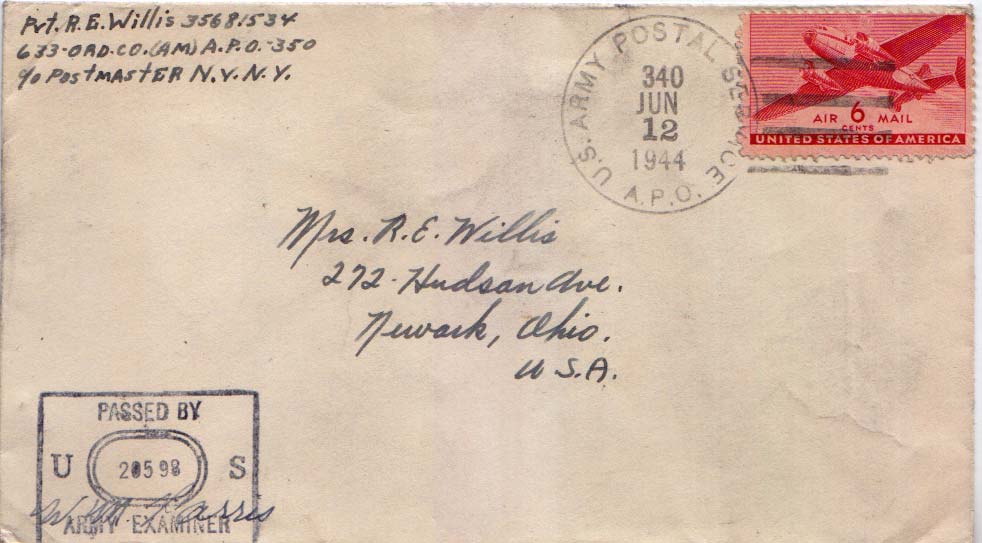 Pvt. R.E. Willis 35681534
633-ORD.CO.(AM) A.P.O.-350
c/o Postmaster N.Y.N.Y.
U.S. ARMY POSTAL SERVICE
340
JUN
12
1944
A.P.O.
AIR 6 MAIL
CENTS
UNITED STATES OF AMERICA
Mrs. R.E. Willis
272-Hudson Ave.
Newark, Ohio.
U.S.A.
PASSED BY
U 20598 S
ARMY EXAMINER